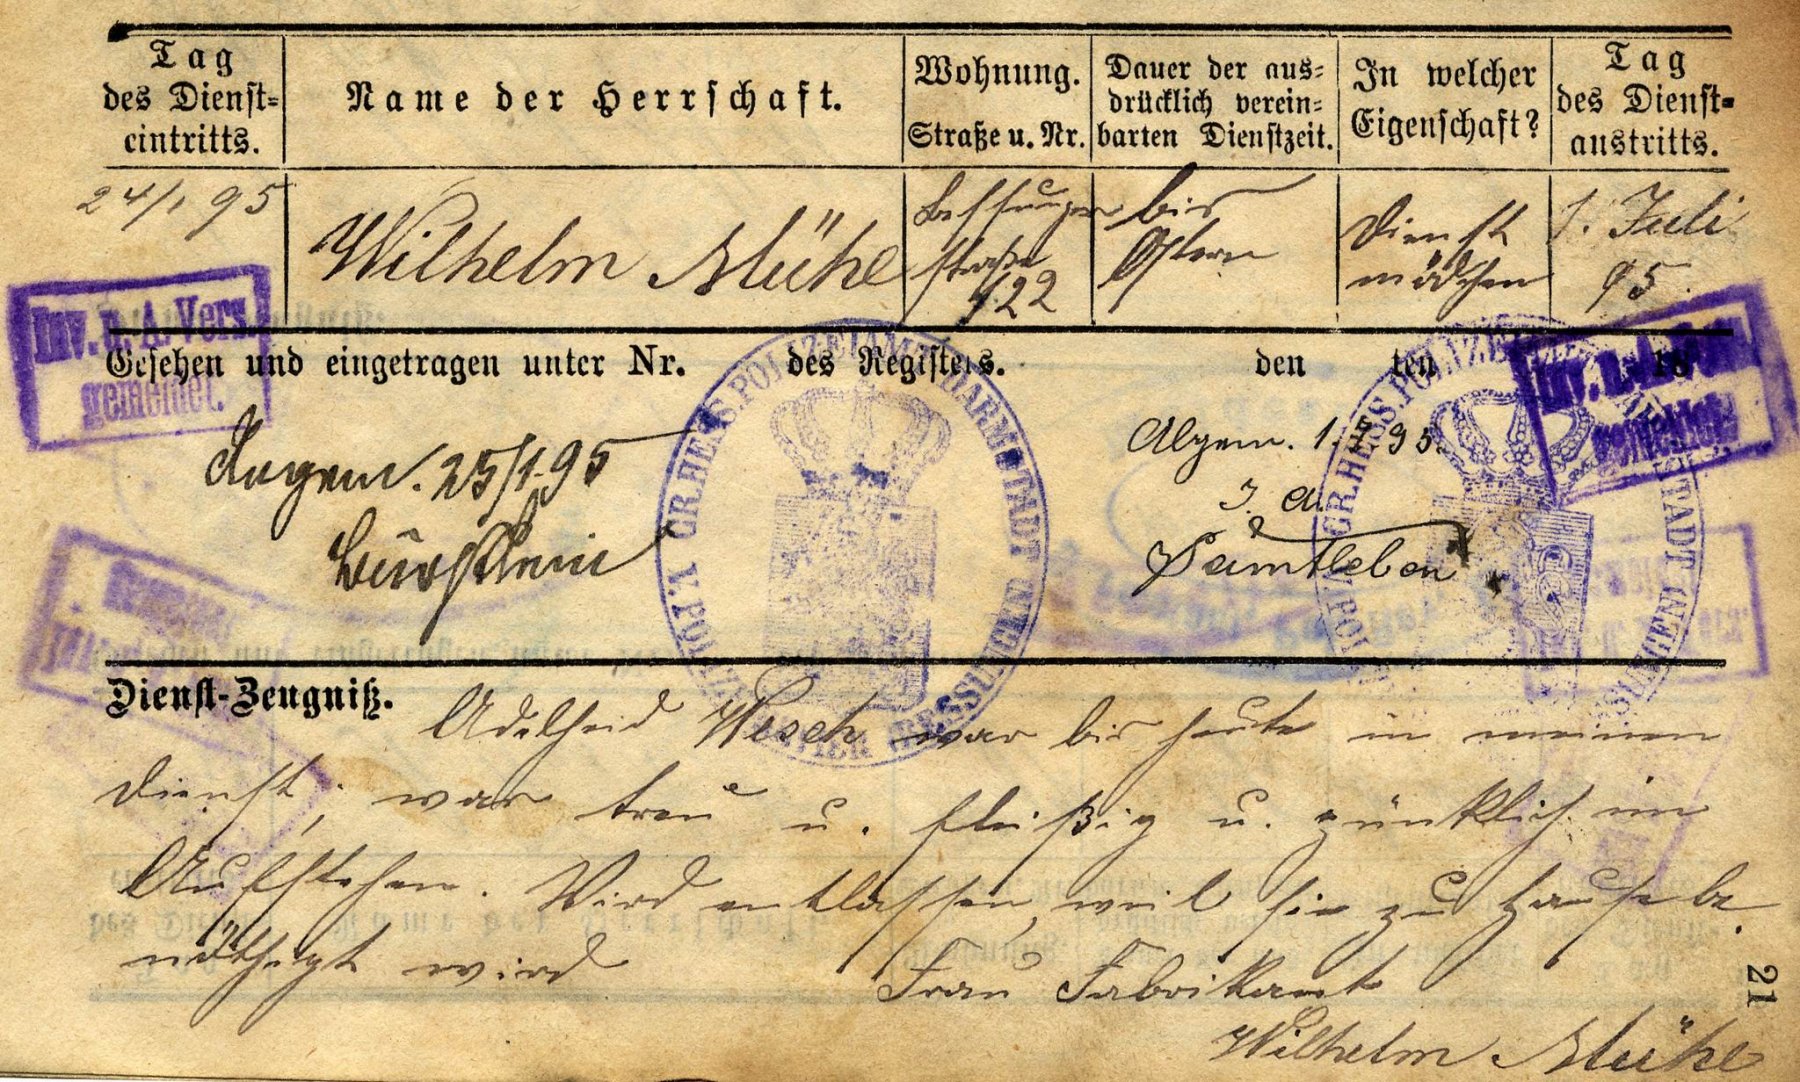 Tag
des Dienst-
eintritts.
Name der Herrschaft.
Wohnung.
Straße u. Nr.
Dauer der aus-
drücklich verein-
barten Dienstzeit.
In welcher
Eigenschaft?
Tag
des Dienst-
austritts.
24/1 95
Wilhelm Mühe
Bessunger
straße
122
bis
Ostern
Dienst
mädchen
1. Juli
95.
Inv. u. A. Vers.
gemeldet.
Inv. u. A. Vers.
gemeldet.
Gesehen und eingetragen unter Nr. des Registers. den ten 18
Angem. 25/1.95
Abgem. 1. 7 95.
I. A.
GR. HESS. POLIZEIAMT DARMSTADT
V. POLIZEI REVIER BESSUNGEN
GR. HESS. POLIZEIAMT DARMSTADT
V. POLIZEI REVIER BESSUNGEN
Dienst-Zeugniß.
Adelheid Wesch war bis heute in meinen
Dienst, war treu u. fleißig u. pünktlich im
Aufstehen. Wird entlassen, weil sie zu Hause be
nöthigt wird
Frau Fabrikant
Wilhelm Mühe
21